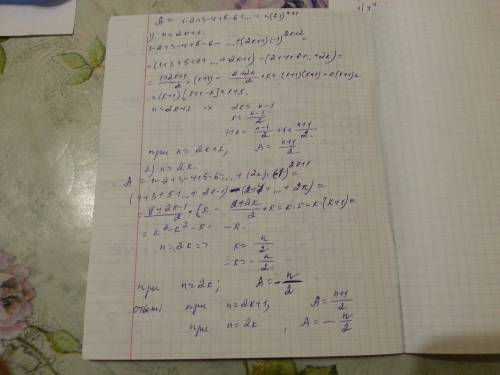 A =
1-2+3-4+5-6+...+n(-1)^{n+1}
1) n=2k+1.
1-2+3-4+5-6-...+(2k+1)(-1)^{2k+2}=
=(1+3+5+...+2k+1)-(2+4+6+...+2k)=
=\frac{1+2k+1}{2}·(k+1)-\frac{2+2k}{2}·k=(k+1)(k+1)-k(k+1)=
=(k+1)[k+1-k]=k+1.
n=2k+1 => 2k=n-1
k=\frac{n-1}{2}
1+k=\frac{n-1}{2}+1=\frac{n+1}{2}
при n=2k+1, A=\frac{n+1}{2}
2) n=2k.
A=1-2+3-4+5-6+...+(2k)(-1)^{2k+1}=
(1+3+5+...+2k-1)-(2+4+...+2k)=
=\frac{1+2k-1}{2}·k-\frac{2+2k}{2}·k=k·k-k(k+1)=
=k²-k²-k=-k.
n=2k=> k=\frac{n}{2}
-k=-\frac{n}{2}
при n=2k; A=-\frac{n}{2}
ответ: при n=2k+1, A=\frac{n+1}{2}
при n=2k, A=-\frac{n}{2}